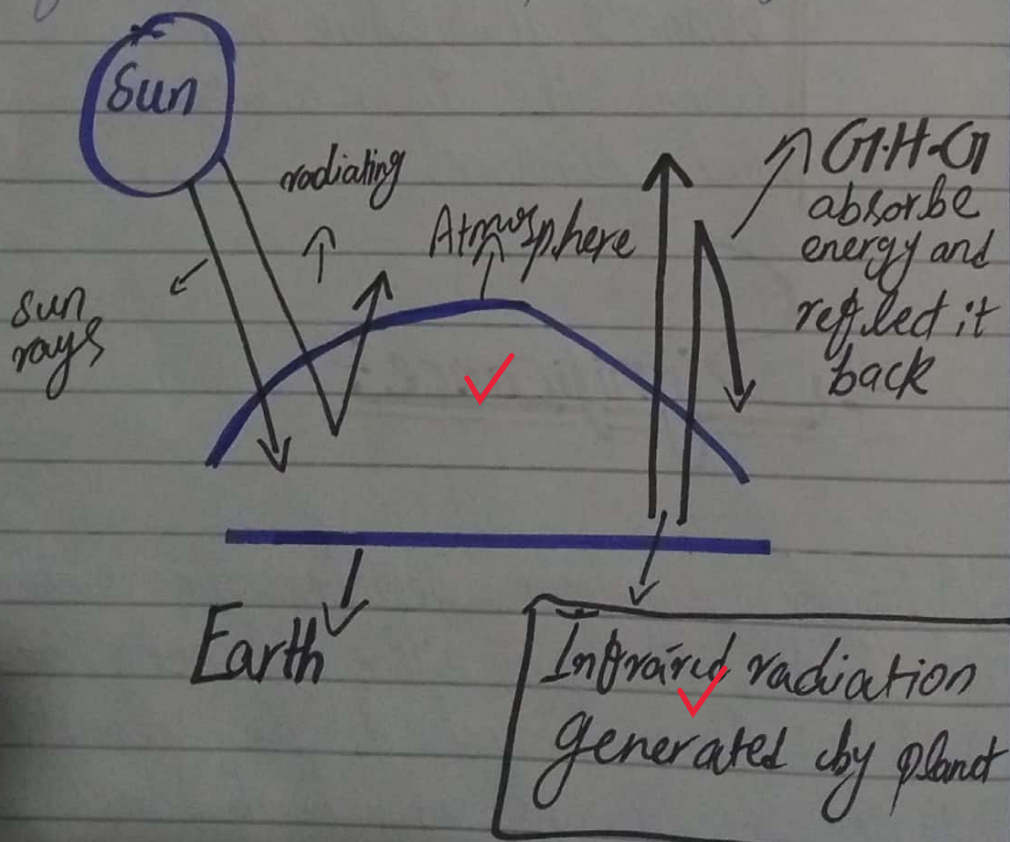 Sun
radiating
Atmosphere
sun
rays
G.H.G
absorbe
energy and
reflect it
back
Earth
Infrared radiation
generated by planet